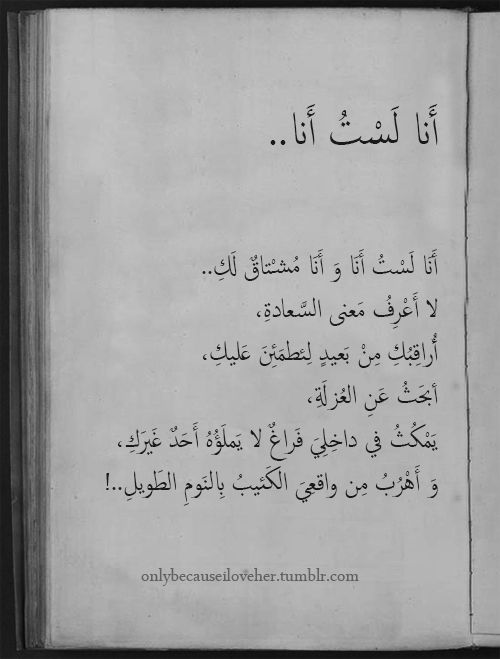 أَنا لَسْتُ أَنا..
أَنَا لَسْتُ أَنَا وَ أَنَا مُشتاقٌ لَكِ..
لا أَعْرِفُ مَعنى السَّعادةِ،
أُراقِبُكِ مِنْ بَعيدٍ لِئطمَئِنَ عَليكِ،
أبحَثُ عَنِ العُزلَةِ،
يَمْكُثُ في داخِلِيَ فَراغٌ لا يَملَؤُهُ أَحَدٌ غَيرَكِ،
وَ أَهْرُبُ مِن واقعِيَ الكَئيبُ بِالنَومِ الطَويلِ..!
onlybecauseiloveher.tumblr.com